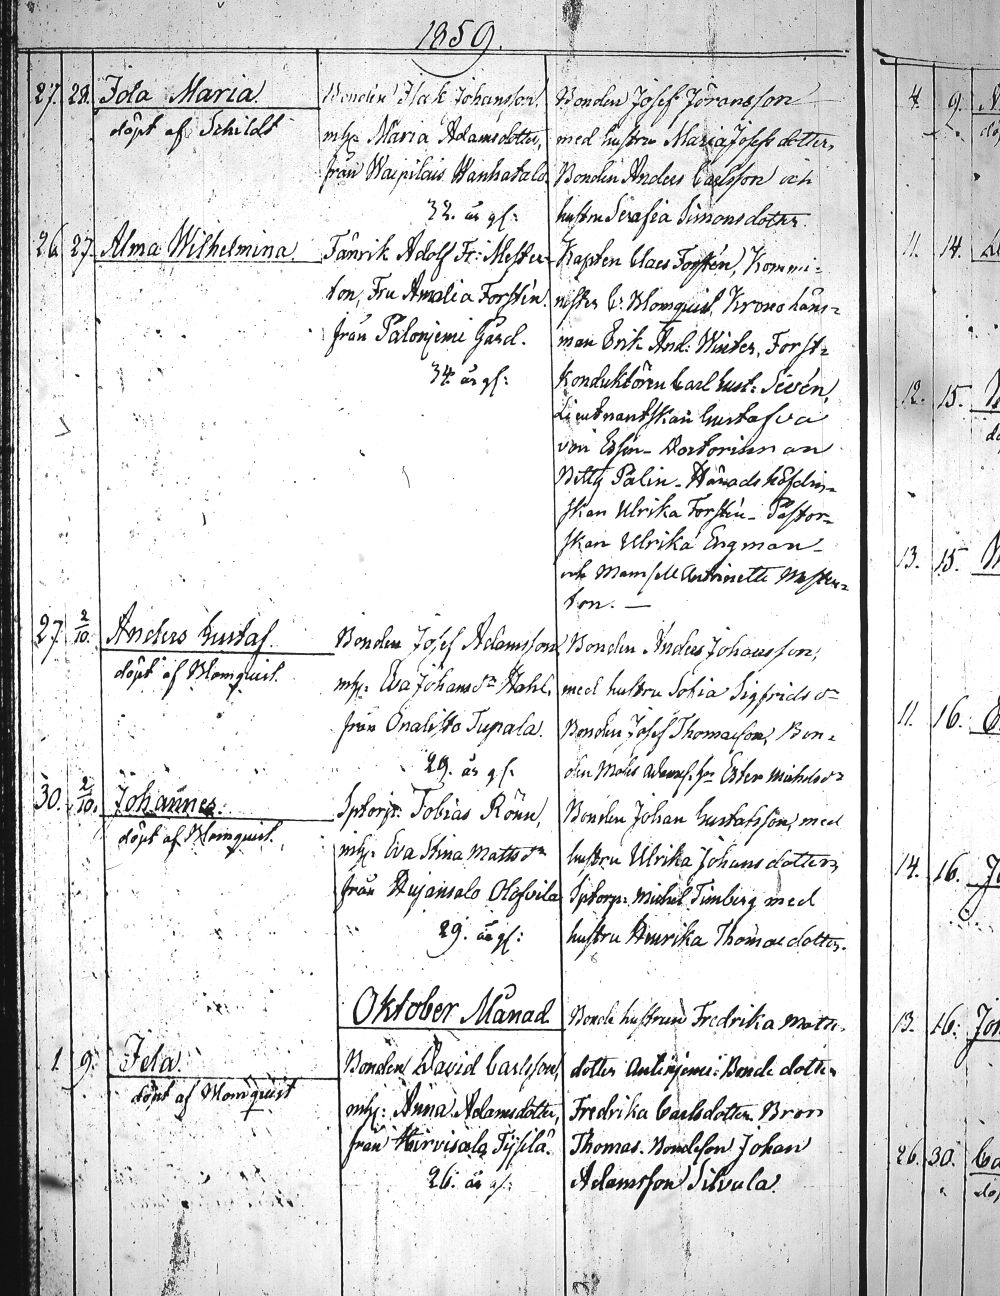 1859.
27. 28. Ida Maria.
döpt af Schildt
Bonden Isak Johansson,
mh: Maria Adamsdotter,
från Waipilais Wanhatalo
32. år gl:
Bonden Josef Jöransson
med hustru Maria Josefsdotter,
Bonden Anders Carlsson och
hustru Serafia Simonsdotter.
26. 27. Alma Wilhelmina
Fänrik Adolf Fr: Mester-
ton, Fru Amalia Forstén
från Palonjemi Gård.
34. år gl:
Kapten Claes Forstén, Kommi-
nister C: Blomquist, Krono läns-
man Erik And: Winter, Forst-
konduktören Carl Gust: Sevén,
Lieutnantskan Gustafva
von Essen - Doctorinnan
Betty Palin - Häradshöfdin-
skan Ulrika Forstén - Pastor-
skan Ulrika Engman -
och Mamsell Antoinette Mester-
ton. —
27. 2/10. Anders Gustaf.
döpt af Blomquist.
Bonden Josef Adamsson
mh: Eva Johansdr Stahl,
från Onalisto Tupala.
29. år gl:
Bonden Anders Johansson,
med hustru Sofia Sigfridsdr
Bonden Josef Thomasson, Bon-
den Mats Adamss hu Ester Michelsdr
30. 2/10. Johannes.
döpt af Blomquist.
Sptorp: Tobias Rönn,
mh: Eva Stina Mattsdr
från Pujansalo Olofvila
29. år gl:
Bonden Johan Gustafsson, med
hustru Ulrika Johansdotter,
Sptorp: Michel Timberg med
hustru Henrika Thomaedotter.
Oktober Månad.
1. 9. Ida.
döpt af Blomquist
Bonden David Carlsson,
mh: Anna Adamsdotter,
från Hirvisalo Tyssilä.
26. år gl:
Bonde hustrun Fredrika Matts-
dotter Antinjemi: Bonde dotter
Fredrika Carlsdotter. Bron
Thomas. Bondeson Johan
Adamsson Silvula.
4. 9.
11. 14.
12. 15.
13. 15.
11. 16.
14. 16.
13. 16.
26. 30.